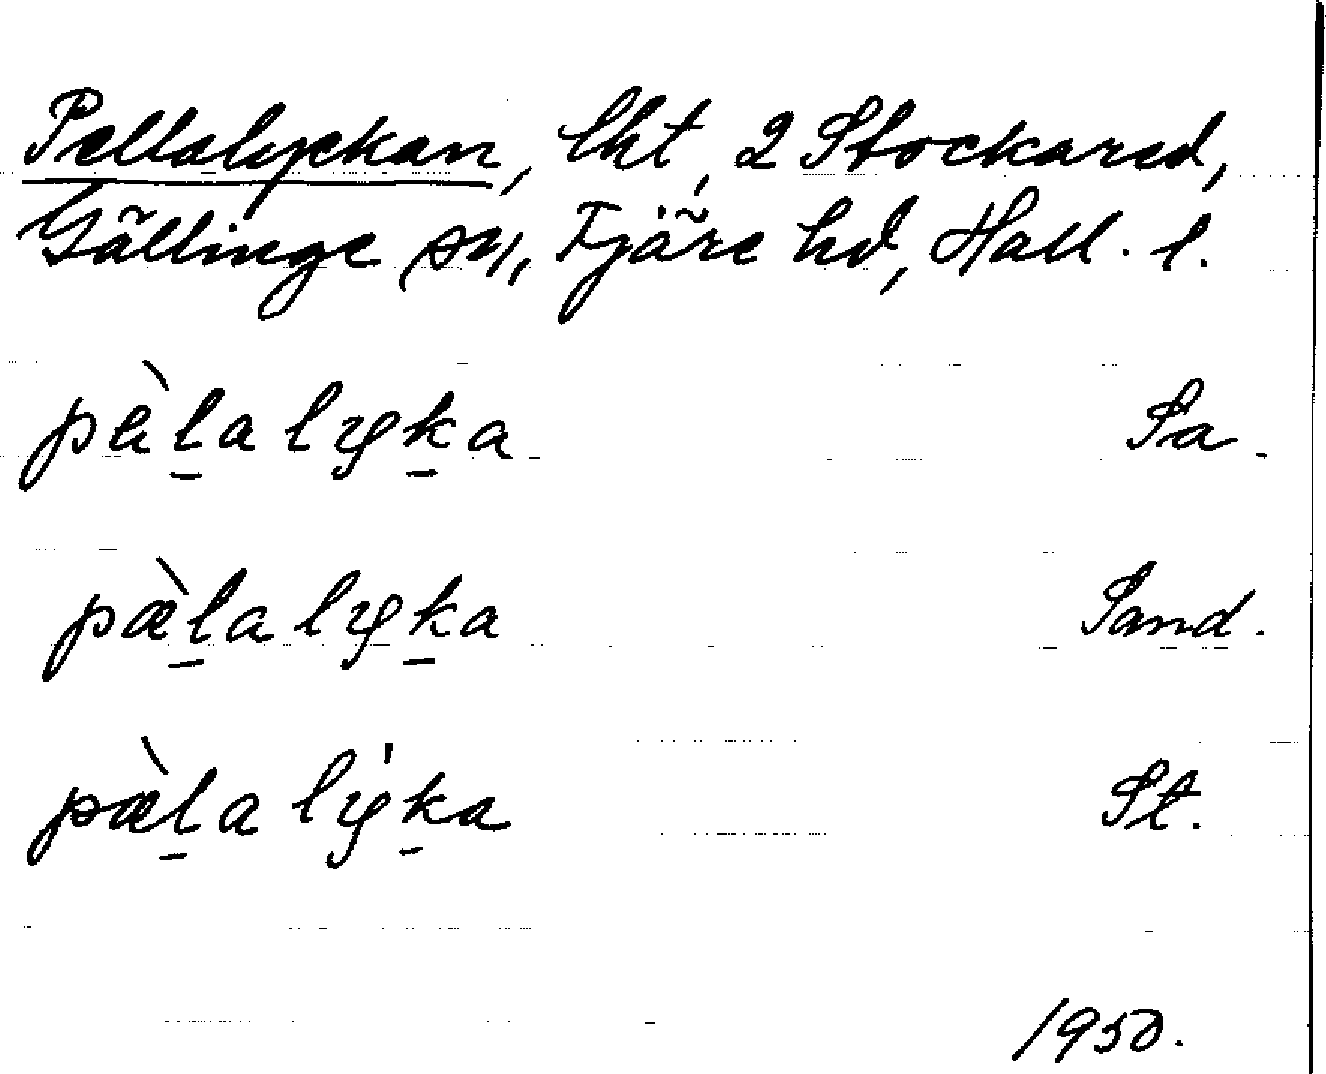 Pellalyckan, lht, 2 Stockared,
Gällinge sn, Fjäre hd, Hall. l.
pɛ̀l̠alyk̠a Sa.
pæ̀l̠alyk̠a Sand.
pæ̀l̠alýk̠a St.
1950.